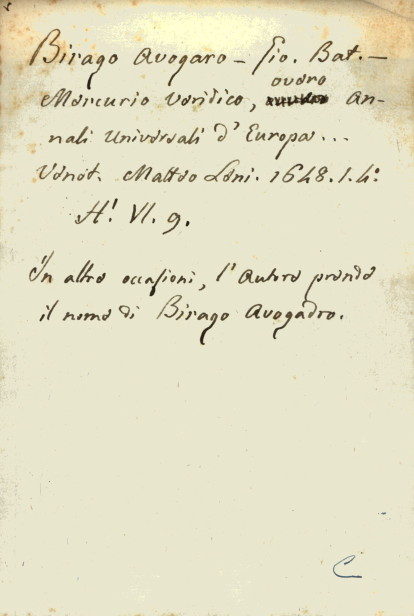 Birago Avogaro - Gio. Bat. -
Mercurio Veridico, overo An-
nali Universali d'Europa...
Venet. Matteo Leni. 1648. 1. 4º
H! VI. 9.
In altre occasioni, l'Autore prende
il nome di Birago Avogadro.
C